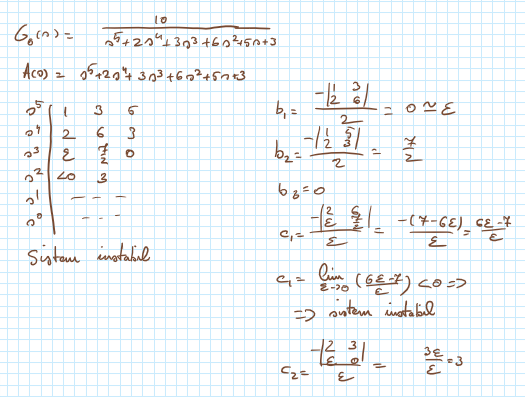 G₀(s) = 10 / (s⁵+2s⁴+3s³+6s²+5s+3)
A(s) = s⁵+2s⁴+3s³+6s²+5s+3
s⁵ | 1 3 5
s⁴ | 2 6 3
s³ | ε 7/2 0
s² | <0 3
s¹ | - - -
s⁰ | - - -
Sistem instabil
b₁ = -|1 3; 2 6| / 2 = 0 ≃ ε
b₂ = -|1 5; 2 3| / 2 = 7/2
b₃ = 0
c₁ = -|2 6; ε 7/2| / ε = -(7-6ε)/ε = (6ε-7)/ε
c₁ = lim ε→0 ((6ε-7)/ε) <0 =>
=> sistem instabil
c₂ = -|2 3; ε 0| / ε = 3ε/ε = 3